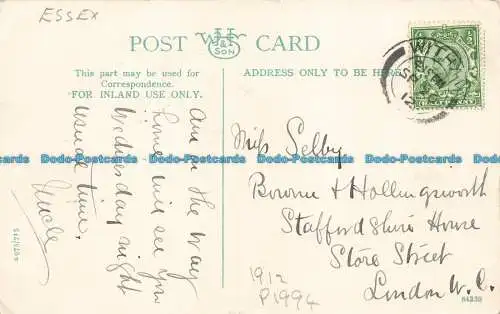 ESSEX
POST CARD
WHS
& SON
This part may be used for
Correspondence.
FOR INLAND USE ONLY.
ADDRESS ONLY TO BE HERE
WITH
12
Am on the way
home, will see you
Wednesday night
usual time.
Uncle
Miss Selby
Bourne & Hollingsworth
Staffordshire House
Store Street
London W.C.
1912
P1994
84239
Todo-Postcards Todo-Postcards Todo-Postcards Todo-Postcards Todo-Postcards